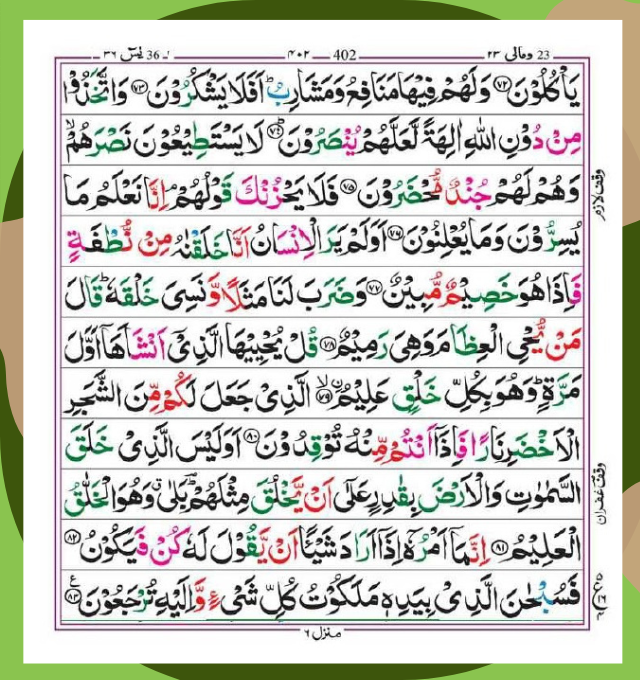 23 ومالی ٢٣ 402 ٤٠٢ یٰسٓ 36 ٣٦
یَاْكُلُوْنَ ﴿٧٢﴾ وَلَهُمْ فِیْهَا مَنَافِعُ وَمَشَارِبُ ؕ اَفَلَا یَشْكُرُوْنَ ﴿٧٣﴾ وَاتَّخَذُوْا
مِنْ دُوْنِ اللّٰهِ اٰلِهَةً لَّعَلَّهُمْ یُنْصَرُوْنَ ﴿٧٤﴾ لَا یَسْتَطِیْعُوْنَ نَصْرَهُمْ ۙ
وَهُمْ لَهُمْ جُنْدٌ مُّحْضَرُوْنَ ﴿٧٥﴾ فَلَا یَحْزُنْكَ قَوْلُهُمْ ۘ اِنَّا نَعْلَمُ مَا
وقف لازم
یُسِرُّوْنَ وَمَا یُعْلِنُوْنَ ﴿٧٦﴾ اَوَلَمْ یَرَ الْاِنْسَانُ اَنَّا خَلَقْنٰهُ مِنْ نُّطْفَةٍ
فَاِذَا هُوَ خَصِیْمٌ مُّبِیْنٌ ﴿٧٧﴾ وَضَرَبَ لَنَا مَثَلًا وَّنَسِیَ خَلْقَهٗ ؕ قَالَ
مَنْ یُّحْیِ الْعِظَامَ وَهِیَ رَمِیْمٌ ﴿٧٨﴾ قُلْ یُحْیِیْهَا الَّذِیْۤ اَنْشَاَهَاۤ اَوَّلَ
مَرَّةٍ ؕ وَهُوَ بِكُلِّ خَلْقٍ عَلِیْمٌ ۙ﴿٧٩﴾ الَّذِیْ جَعَلَ لَكُمْ مِّنَ الشَّجَرِ
الْاَخْضَرِ نَارًا فَاِذَاۤ اَنْتُمْ مِّنْهُ تُوْقِدُوْنَ ﴿٨٠﴾ اَوَلَیْسَ الَّذِیْ خَلَقَ
وقف غفران
السَّمٰوٰتِ وَالْاَرْضَ بِقٰدِرٍ عَلٰۤی اَنْ یَّخْلُقَ مِثْلَهُمْ ؕ بَلٰی ۗ وَهُوَ الْخَلّٰقُ
الْعَلِیْمُ ﴿٨١﴾ اِنَّمَاۤ اَمْرُهٗۤ اِذَاۤ اَرَادَ شَیْـًٔا اَنْ یَّقُوْلَ لَهٗ كُنْ فَیَكُوْنُ ﴿٨٢﴾
فَسُبْحٰنَ الَّذِیْ بِیَدِهٖ مَلَكُوْتُ كُلِّ شَیْءٍ وَّاِلَیْهِ تُرْجَعُوْنَ ﴿٨٣﴾
منزل ٦